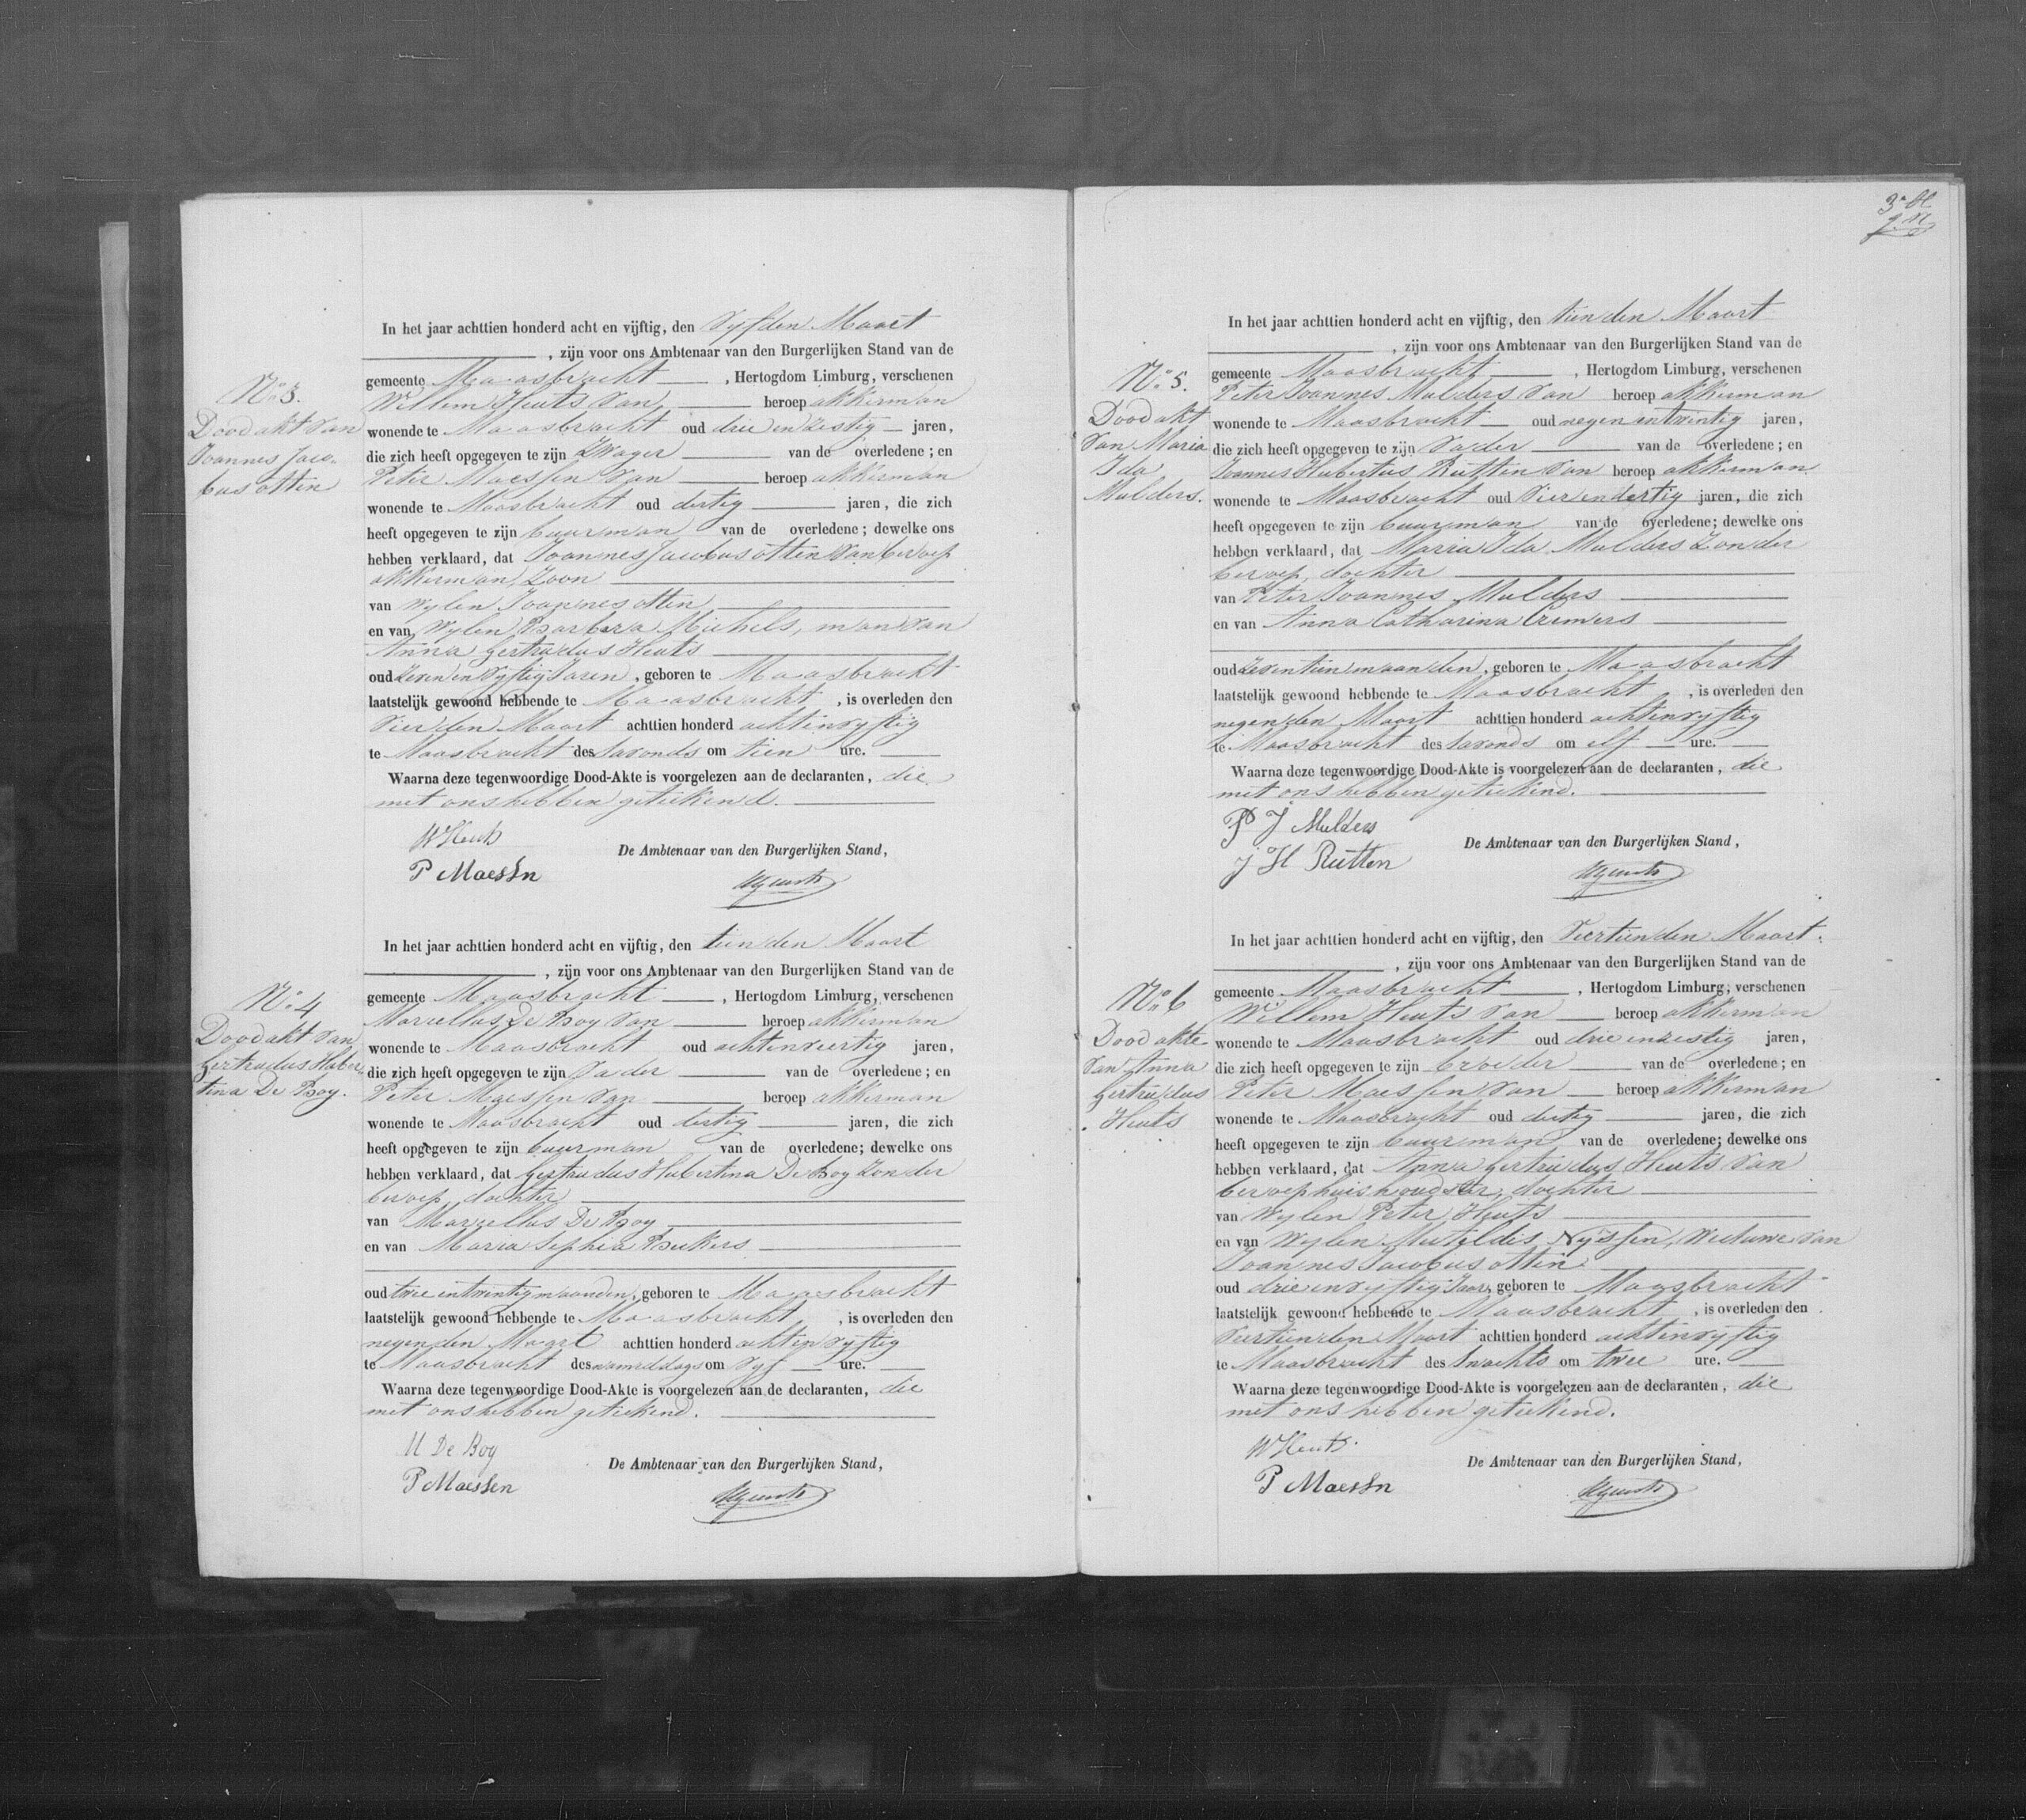 In het jaar achttien honderd acht en vijftig, den vyfden Maart
, zijn voor ons Ambtenaar van den Burgerlijken Stand van de
gemeente Maasbracht , Hertogdom Limburg, verschenen
Willem Heuts van beroep akkerman
wonende te Maasbracht oud drie en zestig jaren,
die zich heeft opgegeven te zijn Zwager van de overledene; en
Peter Maessen van beroep akkerman
wonende te Maasbracht oud dertig jaren, die zich
heeft opgegeven te zijn buurman van de overledene; dewelke ons
hebben verklaard, dat Joannes Jacobus otten van beroep
akkerman, Zoon
van wylen Joannes otten
en van wylen Barbara Michels, man van
Anna Gertrudus Heuts
oud zeven en vyftig Jaren, geboren te Maasbracht
laatstelijk gewoond hebbende te Maasbracht , is overleden den
vierden Maart achttien honderd achtenvyftig
te Maasbracht des savonds om tien ure.
Waarna deze tegenwoordige Dood-Akte is voorgelezen aan de declaranten, die
met ons hebben geteekend.
W Heuts
P Maessn
De Ambtenaar van den Burgerlijken Stand,
No 3.
Doodakt van
Joannes Jaco-
bus otten
In het jaar achttien honderd acht en vijftig, den tienden Maart
, zijn voor ons Ambtenaar van den Burgerlijken Stand van de
gemeente Maasbracht , Hertogdom Limburg, verschenen
Marcellus De Boy van beroep akkerman
wonende te Maasbracht oud achtenveertig jaren,
die zich heeft opgegeven te zijn Vader van de overledene; en
Peter Maessen van beroep akkerman
wonende te Maasbracht oud dertig jaren, die zich
heeft opgegeven te zijn buurman van de overledene; dewelke ons
hebben verklaard, dat Gertrudus Hubertina De Boy zonder
beroep, dochter
van Marcellus De Boy
en van Maria Sophia Beckers
oud twee entwintig maanden, geboren te Maasbracht
laatstelijk gewoond hebbende te Maasbracht , is overleden den
negenden Maart achttien honderd achtenvyftig
te Maasbracht des namiddags om vyf ure.
Waarna deze tegenwoordige Dood-Akte is voorgelezen aan de declaranten, die
met ons hebben getekend.
M De Boy
P Maessen
De Ambtenaar van den Burgerlijken Stand,
No 4
Doodakt van
Gertrudus Huber-
tina De Boy.
In het jaar achttien honderd acht en vijftig, den tienden Maart
, zijn voor ons Ambtenaar van den Burgerlijken Stand van de
gemeente Maasbracht , Hertogdom Limburg, verschenen
Peter Joannes Mulders van beroep akkerman
wonende te Maasbracht oud negen entwintig jaren,
die zich heeft opgegeven te zijn Vader van de overledene; en
Joannes Hubertus Rutten van beroep akkerman
wonende te Maasbracht oud vierendertig jaren, die zich
heeft opgegeven te zijn buurman van de overledene; dewelke ons
hebben verklaard, dat Maria Ida Mulders zonder
beroep, dochter
van Peter Joannes Mulders
en van Anna Catharina Cremers
oud zeventien maanden, geboren te Maasbracht
laatstelijk gewoond hebbende te Maasbracht , is overleden den
negenden Maart achttien honderd achtenvyftig
te Maasbracht des savonds om elf ure.
Waarna deze tegenwoordige Dood-Akte is voorgelezen aan de declaranten, die
met ons hebben getekend.
P J Mulders
J H Rutten
De Ambtenaar van den Burgerlijken Stand,
No 5.
Doodakt
van Maria
Ida
Mulders.
In het jaar achttien honderd acht en vijftig, den Viertienden Maart.
, zijn voor ons Ambtenaar van den Burgerlijken Stand van de
gemeente Maasbracht , Hertogdom Limburg, verschenen
Willem Heuts van beroep akkerman
wonende te Maasbracht oud drie enzestig jaren,
die zich heeft opgegeven te zijn broeder van de overledene; en
Peter Maessen van beroep akkerman
wonende te Maasbracht oud dertig jaren, die zich
heeft opgegeven te zijn buurman van de overledene; dewelke ons
hebben verklaard, dat Anna Gertrudus Heuts van
beroep huishoudster, dochter
van wylen Peter Heuts
en van wylen Metyldis Nyssen, weduwe van
Joannes Jacobus otten
oud drie envyftig Jaar, geboren te Maasbracht
laatstelijk gewoond hebbende te Maasbracht , is overleden den
viertienden Maart achttien honderd achtenvyftig
te Maasbracht des snachts om twee ure.
Waarna deze tegenwoordige Dood-Akte is voorgelezen aan de declaranten, die
met ons hebben getekend.
W Heuts
P Maessn
De Ambtenaar van den Burgerlijken Stand,
No 6
Dood akte
van Anna
Gertrudus
Heuts